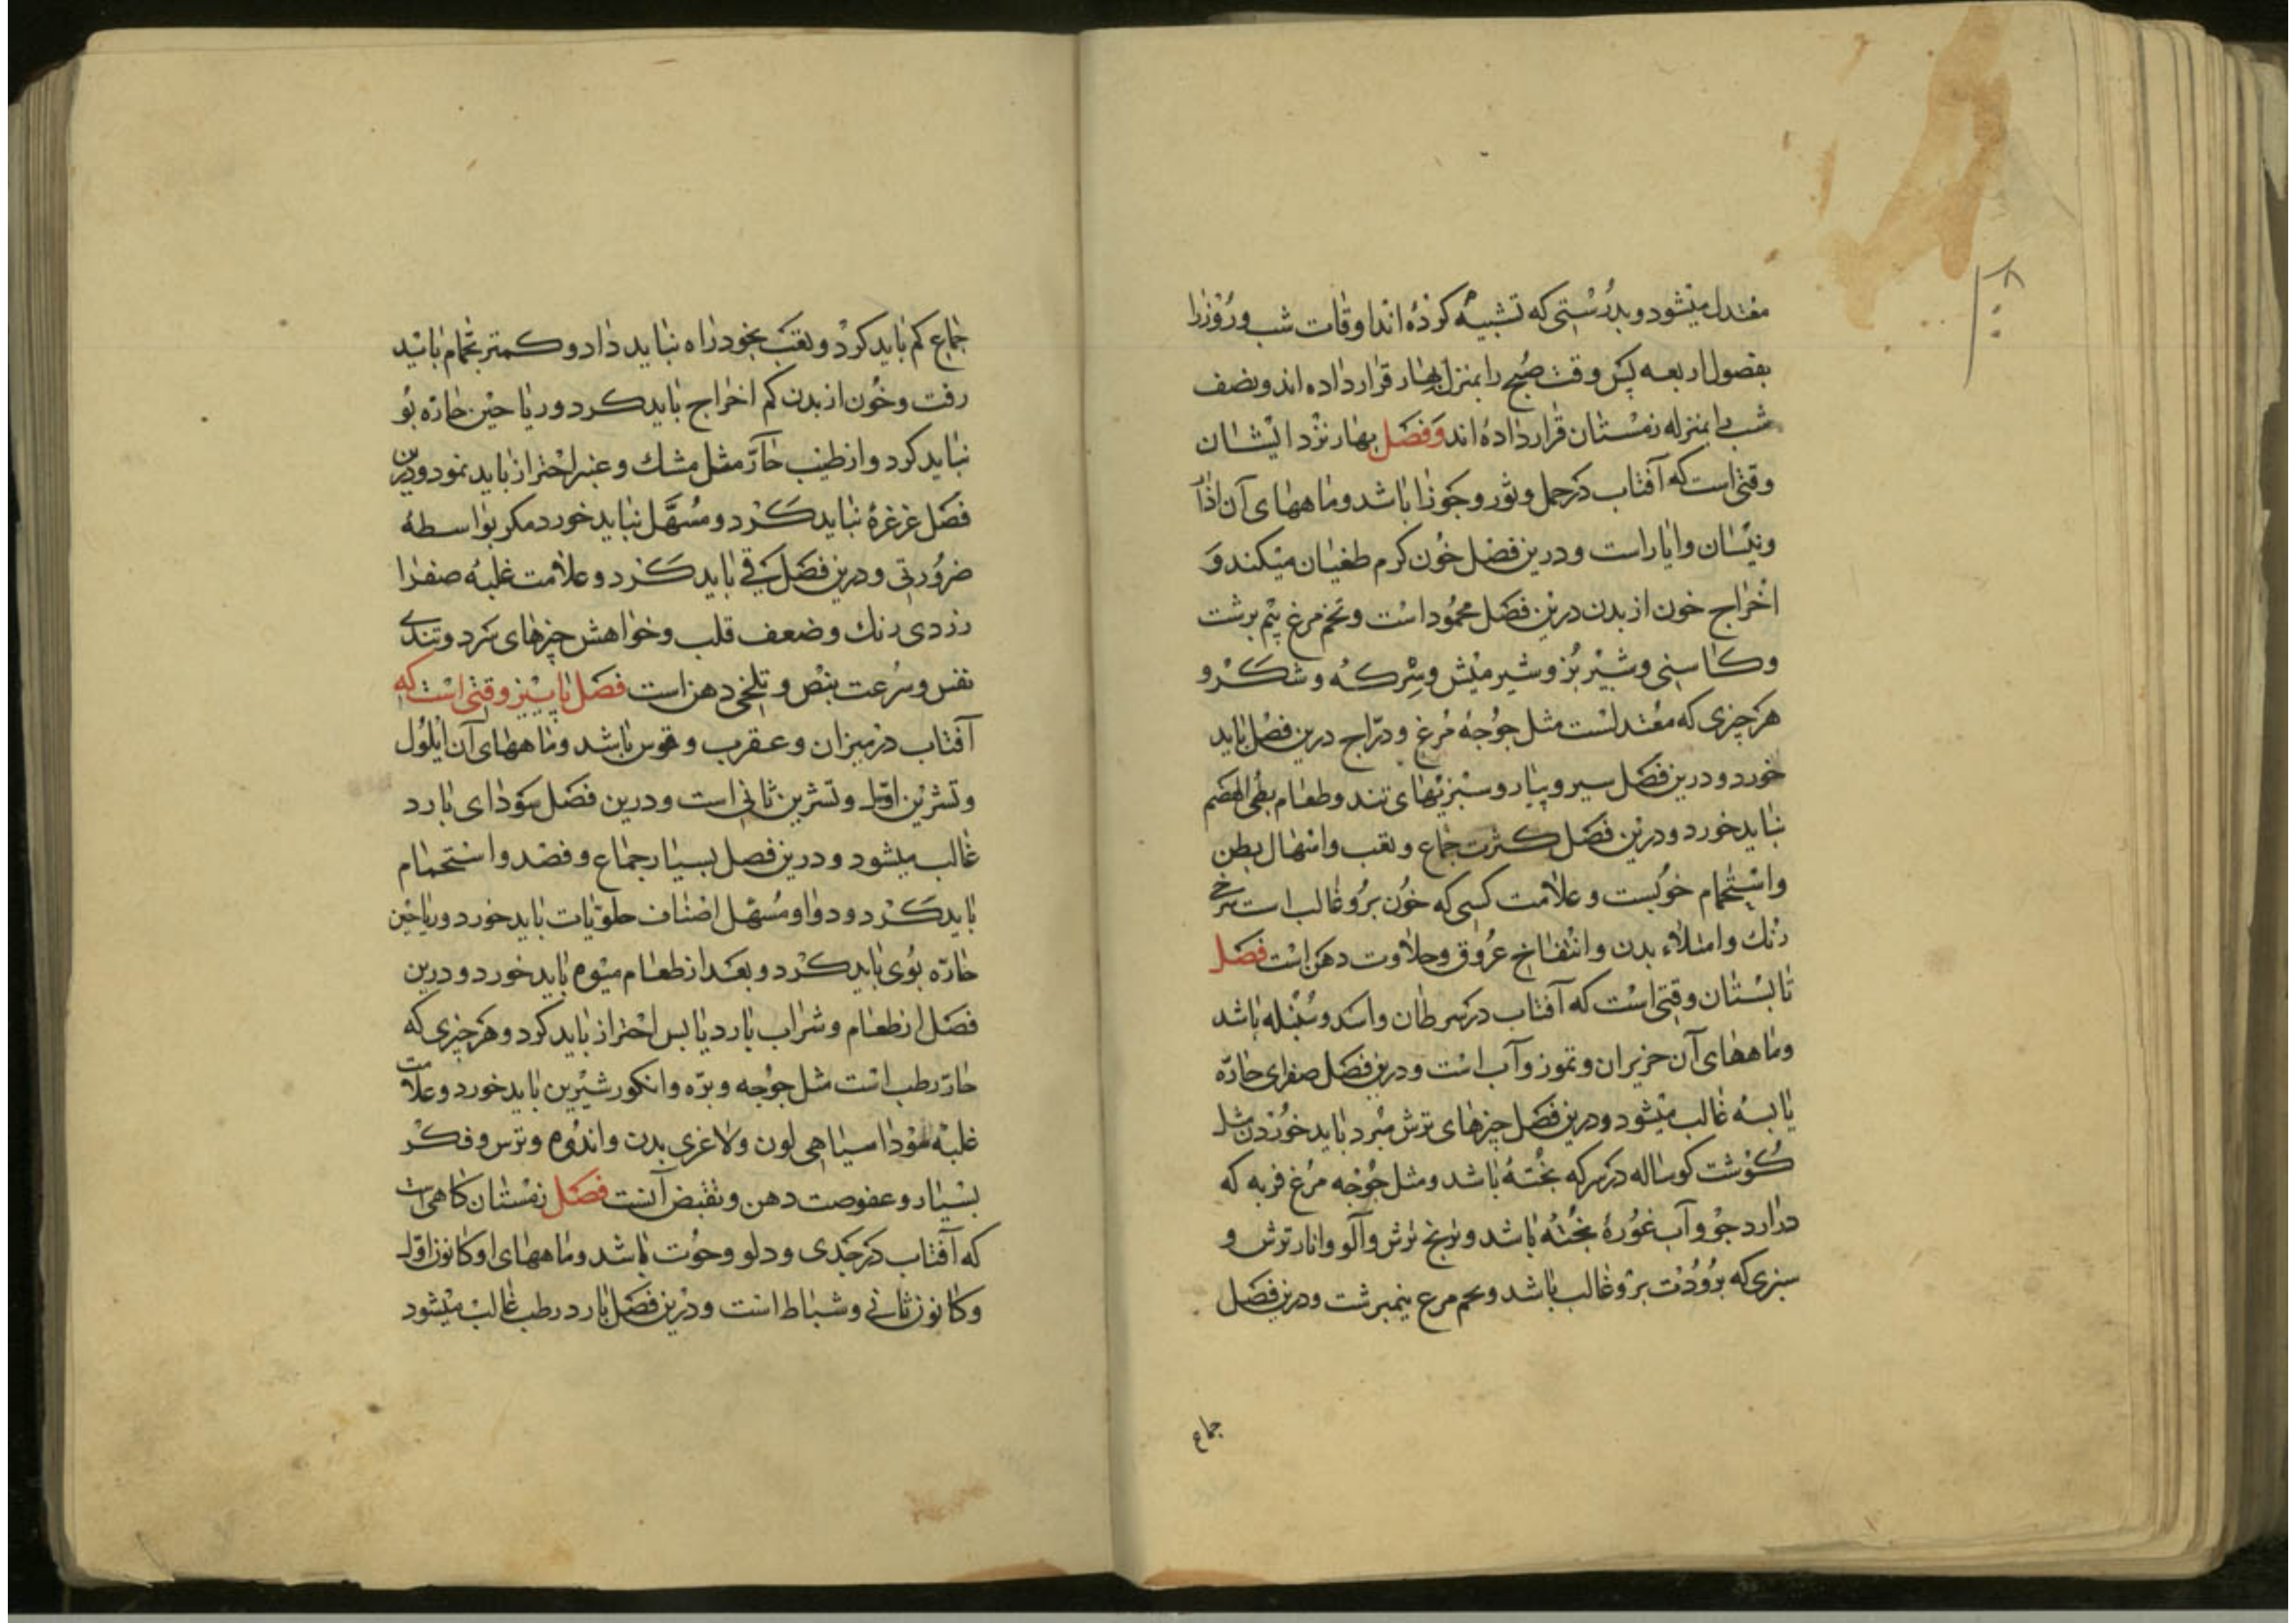 معتدل میشود و بدرستی که تشبیه کرده اند اوقات شب و روز را
بفصول اربعه پس وقت صبح را بمنزل بهار قرار داده اند و نصف
شب را بمنزله زمستان قرار داده اند و فصل بهار نزد ایشان
وقتی است که آفتاب در حمل و ثور و جوزا باشد و ماههای آن اذار
و نیسان و ایار است و درین فصل خون کرم طغیان میکند و
اخراج خون از بدن درین فصل محمود است و تخم مرغ نیم برشت
و کاسنی و شیر بز و شیر میش و سرکه و شکر و
هر چیزی که معتدلست مثل جوجه مرغ و دراج درین فصل باید
خورد و درین فصل سیر و پیاز و سبزیهای تند و طعام بطی الهضم
نباید خورد و درین فصل کثرت جماع و تعب و اسهال بطن
و استحمام خوبست و علامت کسی که خون برو غالب است سرخی
رنك و امتلاء بدن و انتفاخ عروق و حلاوت دهن است فصل
تابستان وقتی است که آفتاب در سرطان و اسد و سنبله باشد
و ماههای آن حزیران و تموز و آب است و درین فصل صفرای حاره
یابسه غالب میشود و درین فصل چیزهای ترش مبرد باید خوردن مثل
کوشت کوساله در سرکه پخته باشد و مثل جوجه مرغ فربه که
در ارد جو و آب غوره پخته باشد و ترنج ترش و آلو و انار ترش و
سبزی که برودت برو غالب باشد و تخم مرغ نیمبرشت و درین فصل
جماع
جماع کم باید کرد و تعب بخود راه نباید داد و کمتر بحمام باید
رفت و خون از بدن کم اخراج باید کرد و ریاحین حاره بو
نباید کرد و از طیب حار مثل مشك و عنبر احتراز باید نمود و درین
فصل غرغره نباید کرد و مسهل نباید خورد مکر بواسطه
ضرورتی و درین فصل قی باید کرد و علامت غلبه صفرا
زردی رنك و ضعف قلب و خواهش چیزهای سرد و تندی
نفس و سرعت نبض و تلخی دهن است فصل پاییز وقتی است که
آفتاب در میزان و عقرب و قوس باشد و ماههای آن ایلول
و تشرین اول و تشرین ثانی است و درین فصل سودای بارد
غالب میشود و درین فصل بسیار جماع و فصد و استحمام
باید کرد و دوا و مسهل اصناف حلویات باید خورد و ریاحین
حاره بوی باید کرد و بعد از طعام میوه باید خورد و درین
فصل از طعام و شراب بارد یابس احتراز باید کرد و هر چیزی که
حار رطب است مثل جوجه و بره و انکور شیرین باید خورد و علامت
غلبه سودا سیاهی لون و لاغری بدن و اندوه و ترس و فکر
بسیار و عفوصت دهن و تقبض آنست فصل زمستان کاهی است
که آفتاب در جدی و دلو و حوت باشد و ماههای او کانون اول
و کانون ثانی و شباط است و درین فصل بارد رطب غالب میشود